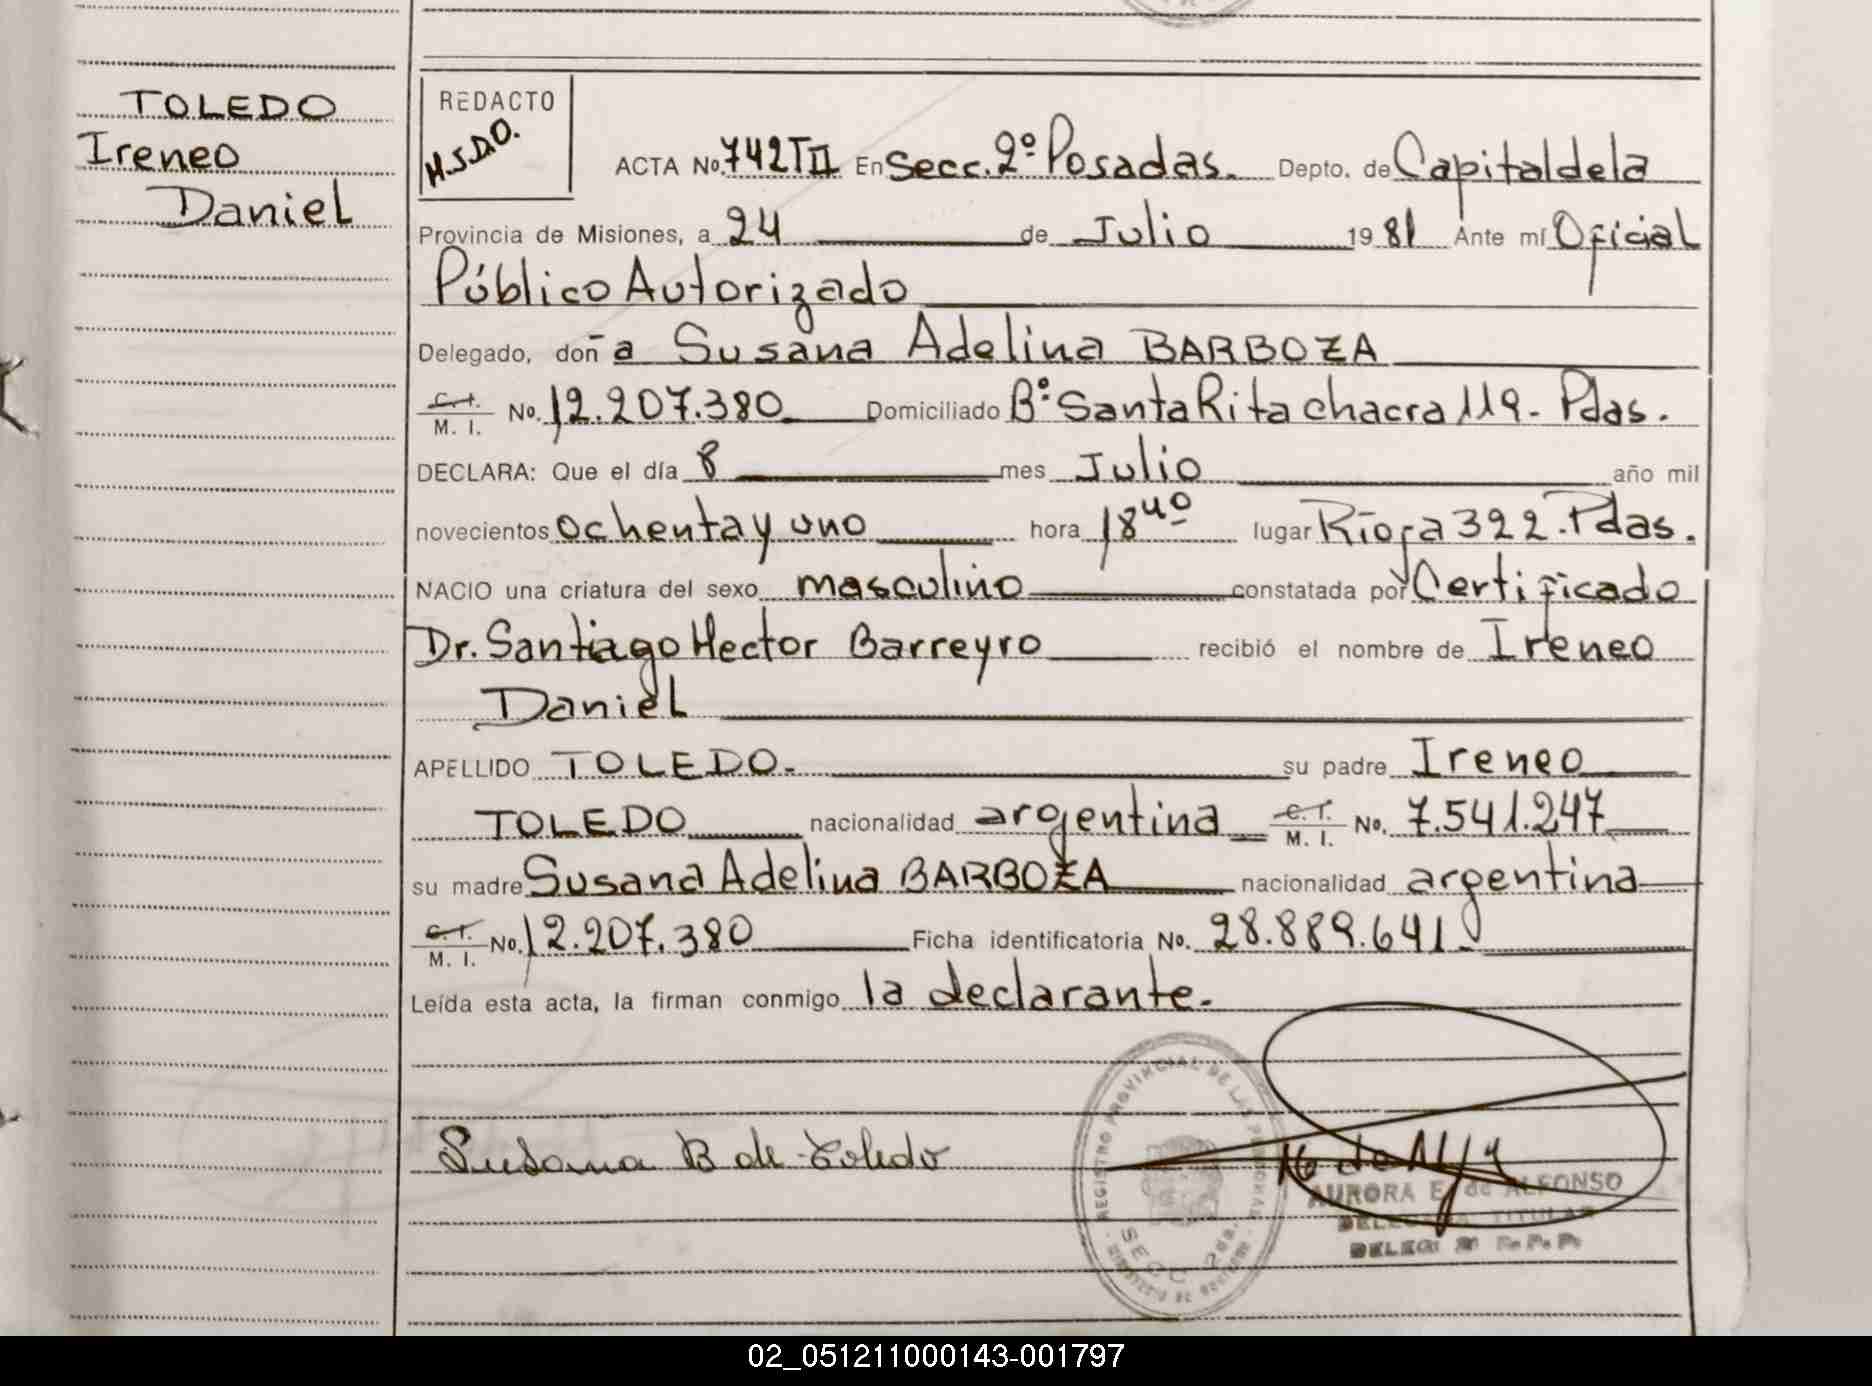 TOLEDO
Ireneo
Daniel
REDACTO
H.S.D.O.
ACTA No. 742 T II En Secc. 2º Posadas. Depto. de Capital de la
Provincia de Misiones, a 24 de Julio 1981 Ante mí Oficial
Público Autorizado
Delegado, doña Susana Adelina BARBOZA
C.I. / M. I. No. 12.207.380 Domiciliado Bº Santa Rita chacra 119- Pdas.
DECLARA: Que el día 8 mes Julio año mil
novecientos ochenta y uno hora 18 40 lugar Rioja 322. Pdas.
NACIO una criatura del sexo masculino constatada por Certificado
Dr. Santiago Hector Barreyro recibió el nombre de Ireneo
Daniel
APELLIDO TOLEDO. su padre Ireneo
TOLEDO nacionalidad argentina C.I. / M. I. No. 7.541.247
su madre Susana Adelina BARBOZA nacionalidad argentina
C.I. / M. I. No. 12.207.380 Ficha identificatoria No. 28.889.641.
Leída esta acta, la firman conmigo la declarante.
REGISTRO PROVINCIAL DE LAS PERSONAS
SECC. 2da.
Susana B de Toledo
AURORA E. de ALFONSO
DELEGADA TITULAR
02_051211000143-001797